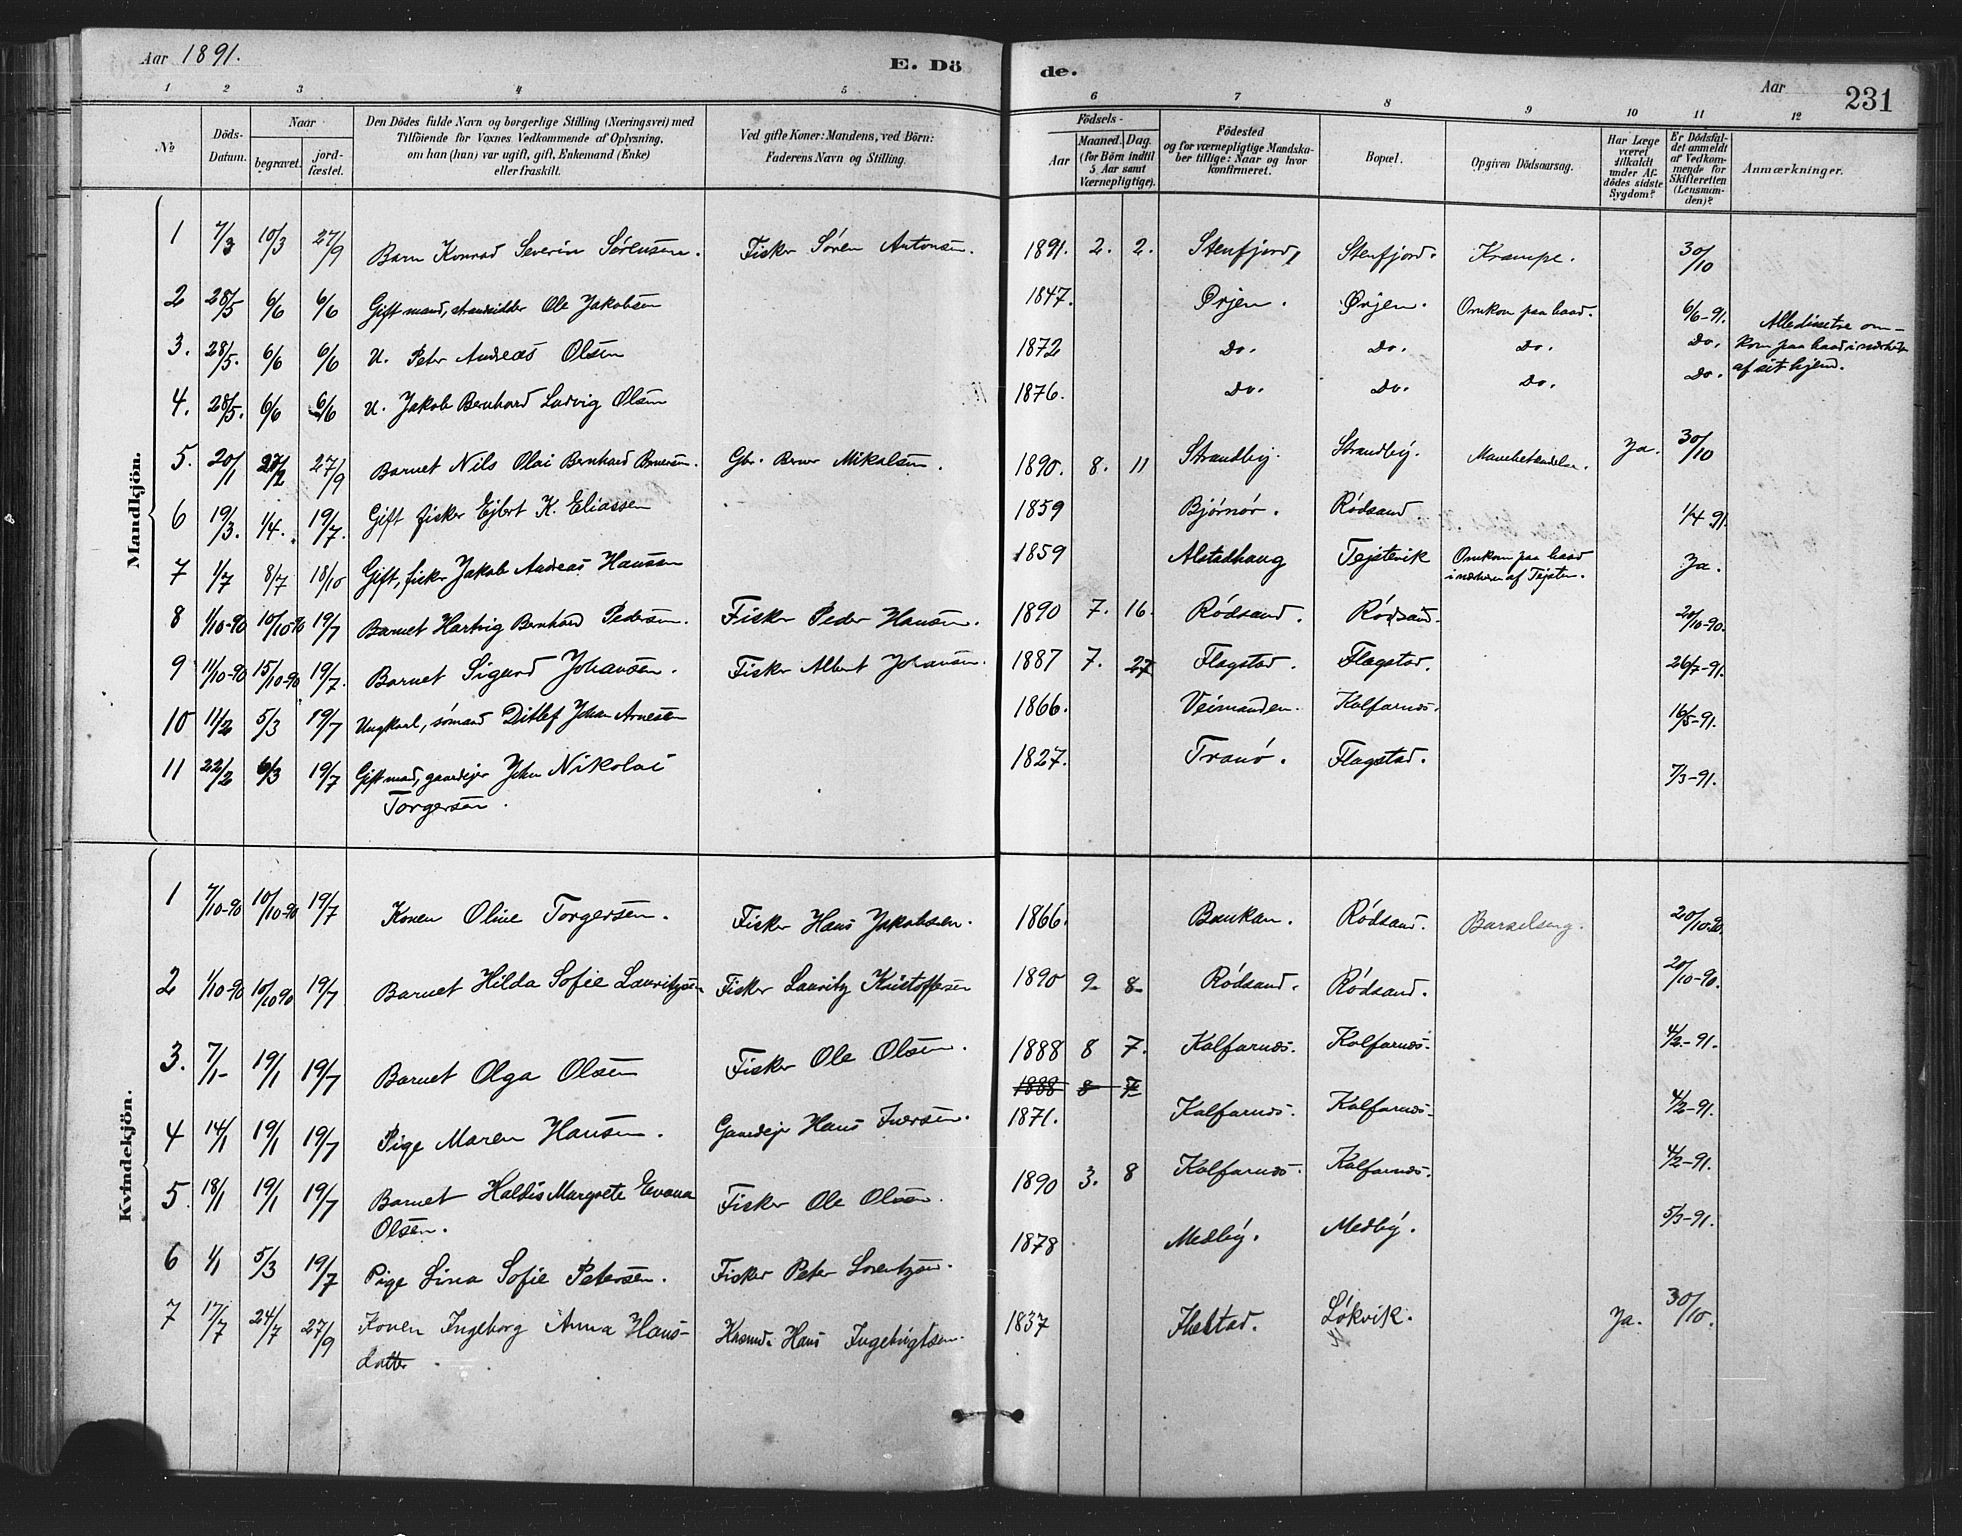 Aar 1891. E. Dö de. Aar 231
1 2 3 4 5 6 7 8 9 10 11 12
No
Döds-Datum.
Naar
begravet.
jord-fæstet.
Den Dödes fulde Navn og borgerlige Stilling (Næringsvei) med
Tilföiende for Voxnes Vedkommende af Oplysning,
om han (hun) var ugift, gift, Enkemand (Enke)
eller fraskilt.
Ved gifte Koner: Mandens, ved Börn:
Faderens Navn og Stilling.
Födsels-
Aar
Maaned. Dag.
(for Börn indtil
5 Aar samt
Værnepligtige).
Födested
og for værnepligtige Mandska-
ber tillige: Naar og hvor
konfirmeret.
Bopæl.
Opgiven Dödsaarsag.
Har Læge
været
tilkaldt
under Af-
dödes sidste
Sygdom?
Er Dödsfal-
det anmeldt
af Vedkom-
mende for
Skifteretten
(Lensman-
den)?
Anmærkninger.
Mandkjön.
1 7/3 10/3 27/9 Barn Konrad Severin Sörensen. Fisker Sören Antonsen. 1891. 2. 2. Stenfjord, Stenfjord. Krampe. 30/10
2 28/5 6/6 6/6 Gift mand, strandsidder Ole Jakobsen 1847. Ørjen. Ørjen. Omkom paa baad. 6/6-91.
3. 28/5. 6/6 6/6 U. Peter Andreas Olsen 1872 Do. Do. Do. Do.
Alle disse tre om-
kom paa baad i nærhet
af sit hjem.
4. 28/5. 6/6 6/6 U. Jakob Bernhard Ludvig Olsen 1876. Do. Do. Do. Do.
5. 20/1 27/9 Barnet Nils Olai Bernhard Bernersen. Gbr. Berner Mikalsen. 1890. 8. 11 Strandby. Strandby. Ja. 30/10
6 19/3. 1/4. 19/7. Gift fisker Ejlert K. Eliassen 1859 Bjørnør. Rödsand. 1/4 91.
7 1/7 8/7 18/10 Gift, fisker Jakob Andreas Hansen 1859 Alstadhaug Tejstevik Omkom paa baad
i nærheten af Tejsten. Ja.
8 1/10-90 10/10-90 19/7 Barnet Hartvig Bernhard Pedersen. Fisker Peder Hansen. 1890 7. 16. Rödsand. Rödsand. 20/10-90.
9 11/10-90 15/10-90 19/7. Barnet Sigurd Johansen. Fisker Albert Johansen. 1887 7. 27 Flagstad. Flagstad. 26/7-91.
10 11/2 5/3 19/7 Ungkarl, sömand Ditlef Johan Arnesen 1866. Veimanden. Kalfarnes. 16/5-91.
11 22/2 6/3 19/7 Gift mand, gaardejer Johan Nikolai
Torgersen. 1827. Tranö. Flagstad. 7/3-91.
Kvindekjön.
1 7/10-90 10/10-90 19/7 Konen Oline Torgersen. Fisker Hans Jakobsen. 1866. Baukan. Rödsand. Barselseng. 20/10-90.
2 1/10-90 10/10 90 19/7 Barnet Hilda Sofie Lauritzsen Fisker Lauritz Kristoffersen 1890 9 8 Rödsand. Rödsand. 20/10-90.
3. 7/1 19/1 19/7 Barnet Olga Olsen Fisker Ole Olsen. 1888 8 7. Kalfarnes. Kalfarnes. 4/2-91.
1888 8 7
4 14/1 19/1 19/7 Pige Maren Hansen. Gaardejr Hans Iversen. 1871. Kalfarnes. Kalfarnes. 4/2-91.
5. 18/1 19/1 19/7 Barnet Haldis Margrete Evana
Olsen. Fisker Ole Olsen. 1890 3. 8 Kalfarnes. Kalfarnes. 4/2-91.
6 1/1 5/3 19/7 Pige Lina Sofie Petersen. Fisker Peter Lorentzen. 1878 Medby. Medby. 5/3-91.
7 17/7 24/7 27/9 Konen Ingeborg Anna Hans-
datter. Hans Ingebrigtsen. 1837 Lökvik. Ja. 30/10.